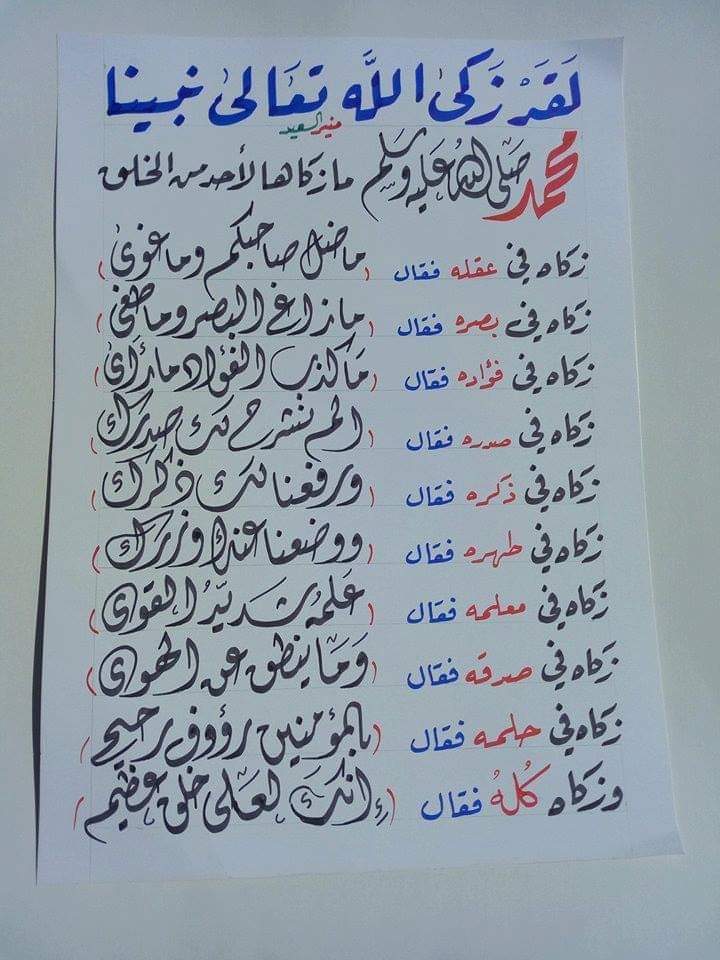 لَقَد زَكىٰ اللَّه تعَالىٰ نبينا
منير السعيد
محمد صَلّى اللهُ عَليْه وسَلم ما زكاها لأحد من الخلق
زكاه في عقله فقال (ما ضل صاحبكم وما غوىٰ)
زكاه في بصره فقال (ما زاغ البصر وما طغىٰ)
زكاه في فؤاده فقال (مَا كذب الفؤاد ما رأىٰ)
زكاه في صدره فقال (الم نشرح لك صدرك)
زكاه في ذكره فقال (ورفعنا لك ذكرك)
زكاه في طهره فقال (ووضعنا عنك وزرك)
زكاه في معلمه فقال (عَلمهُ شديدُ القوىٰ)
زكاه في صدقه فقال (وَمَا ينطق عن الهوىٰ)
زكاه في حلمه فقال (بالمؤمنين رؤوف رحيم)
وزكاه كُلهُ فقال (إنكَ لعَلىٰ خلق عظيم)